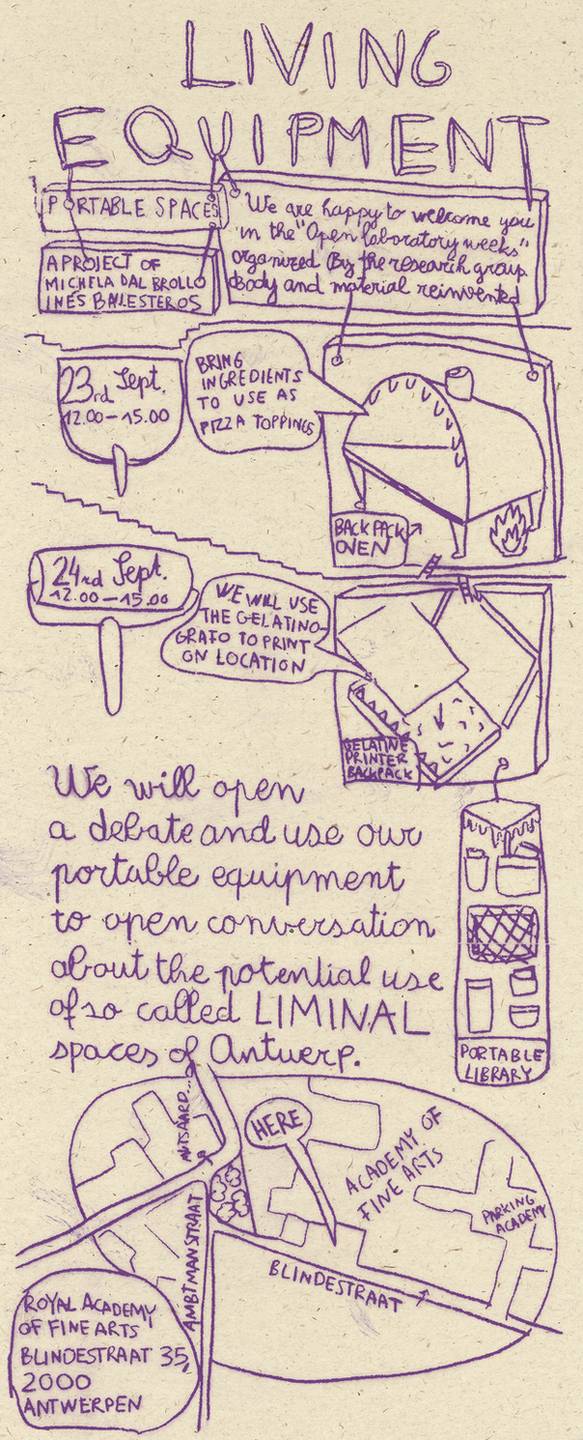 LIVING
EQUIPMENT
PORTABLE SPACES
A PROJECT OF
MICHELA DAL BROLLO
INÉS BALLESTEROS
We are happy to welcome you
in the "Open laboratory weeks"
organized By the research group
Body and material reinvented
23rd Sept.
12.00-15.00
BRING
INGREDIENTS
TO USE AS
PIZZA TOPPINGS
BACKPACK
OVEN
24rd Sept.
12.00-15.00
WE WILL USE
THE GELATINO-
GRAFO TO PRINT
ON LOCATION
GELATINE
PRINTER
BACKPACK
We will open
a debate and use our
portable equipment
to open conversation
about the potential use
of so called LIMINAL
spaces of Antwerp.
PORTABLE
LIBRARY
MUTSAARD...
HERE
ACADEMY OF
FINE ARTS
PARKING
ACADEMY
AMBTMANSTRAAT
BLINDESTRAAT
ROYAL ACADEMY
OF FINE ARTS
BLINDESTRAAT 35,
2000
ANTWERPEN